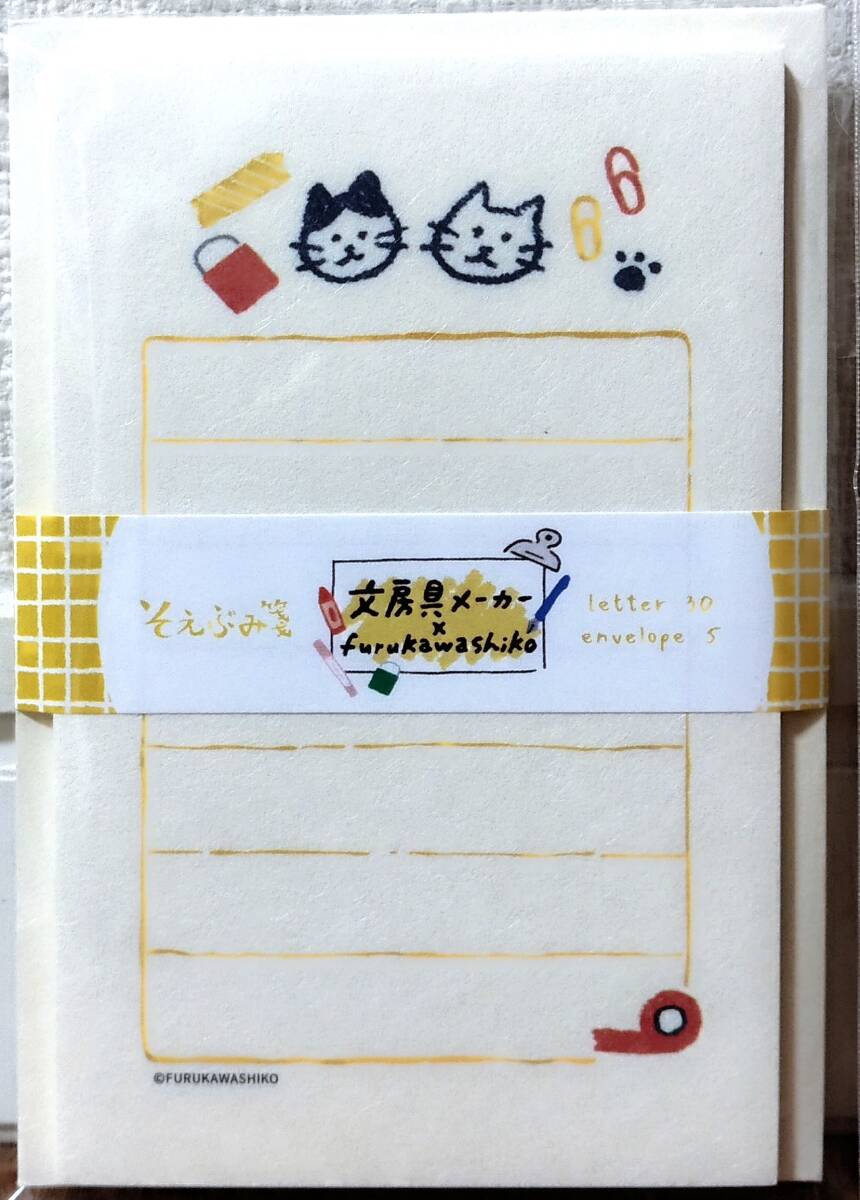 そえぶみ箋
文房具メーカー
×
furukawashiko
letter 30
envelope 5
©FURUKAWASHIKO